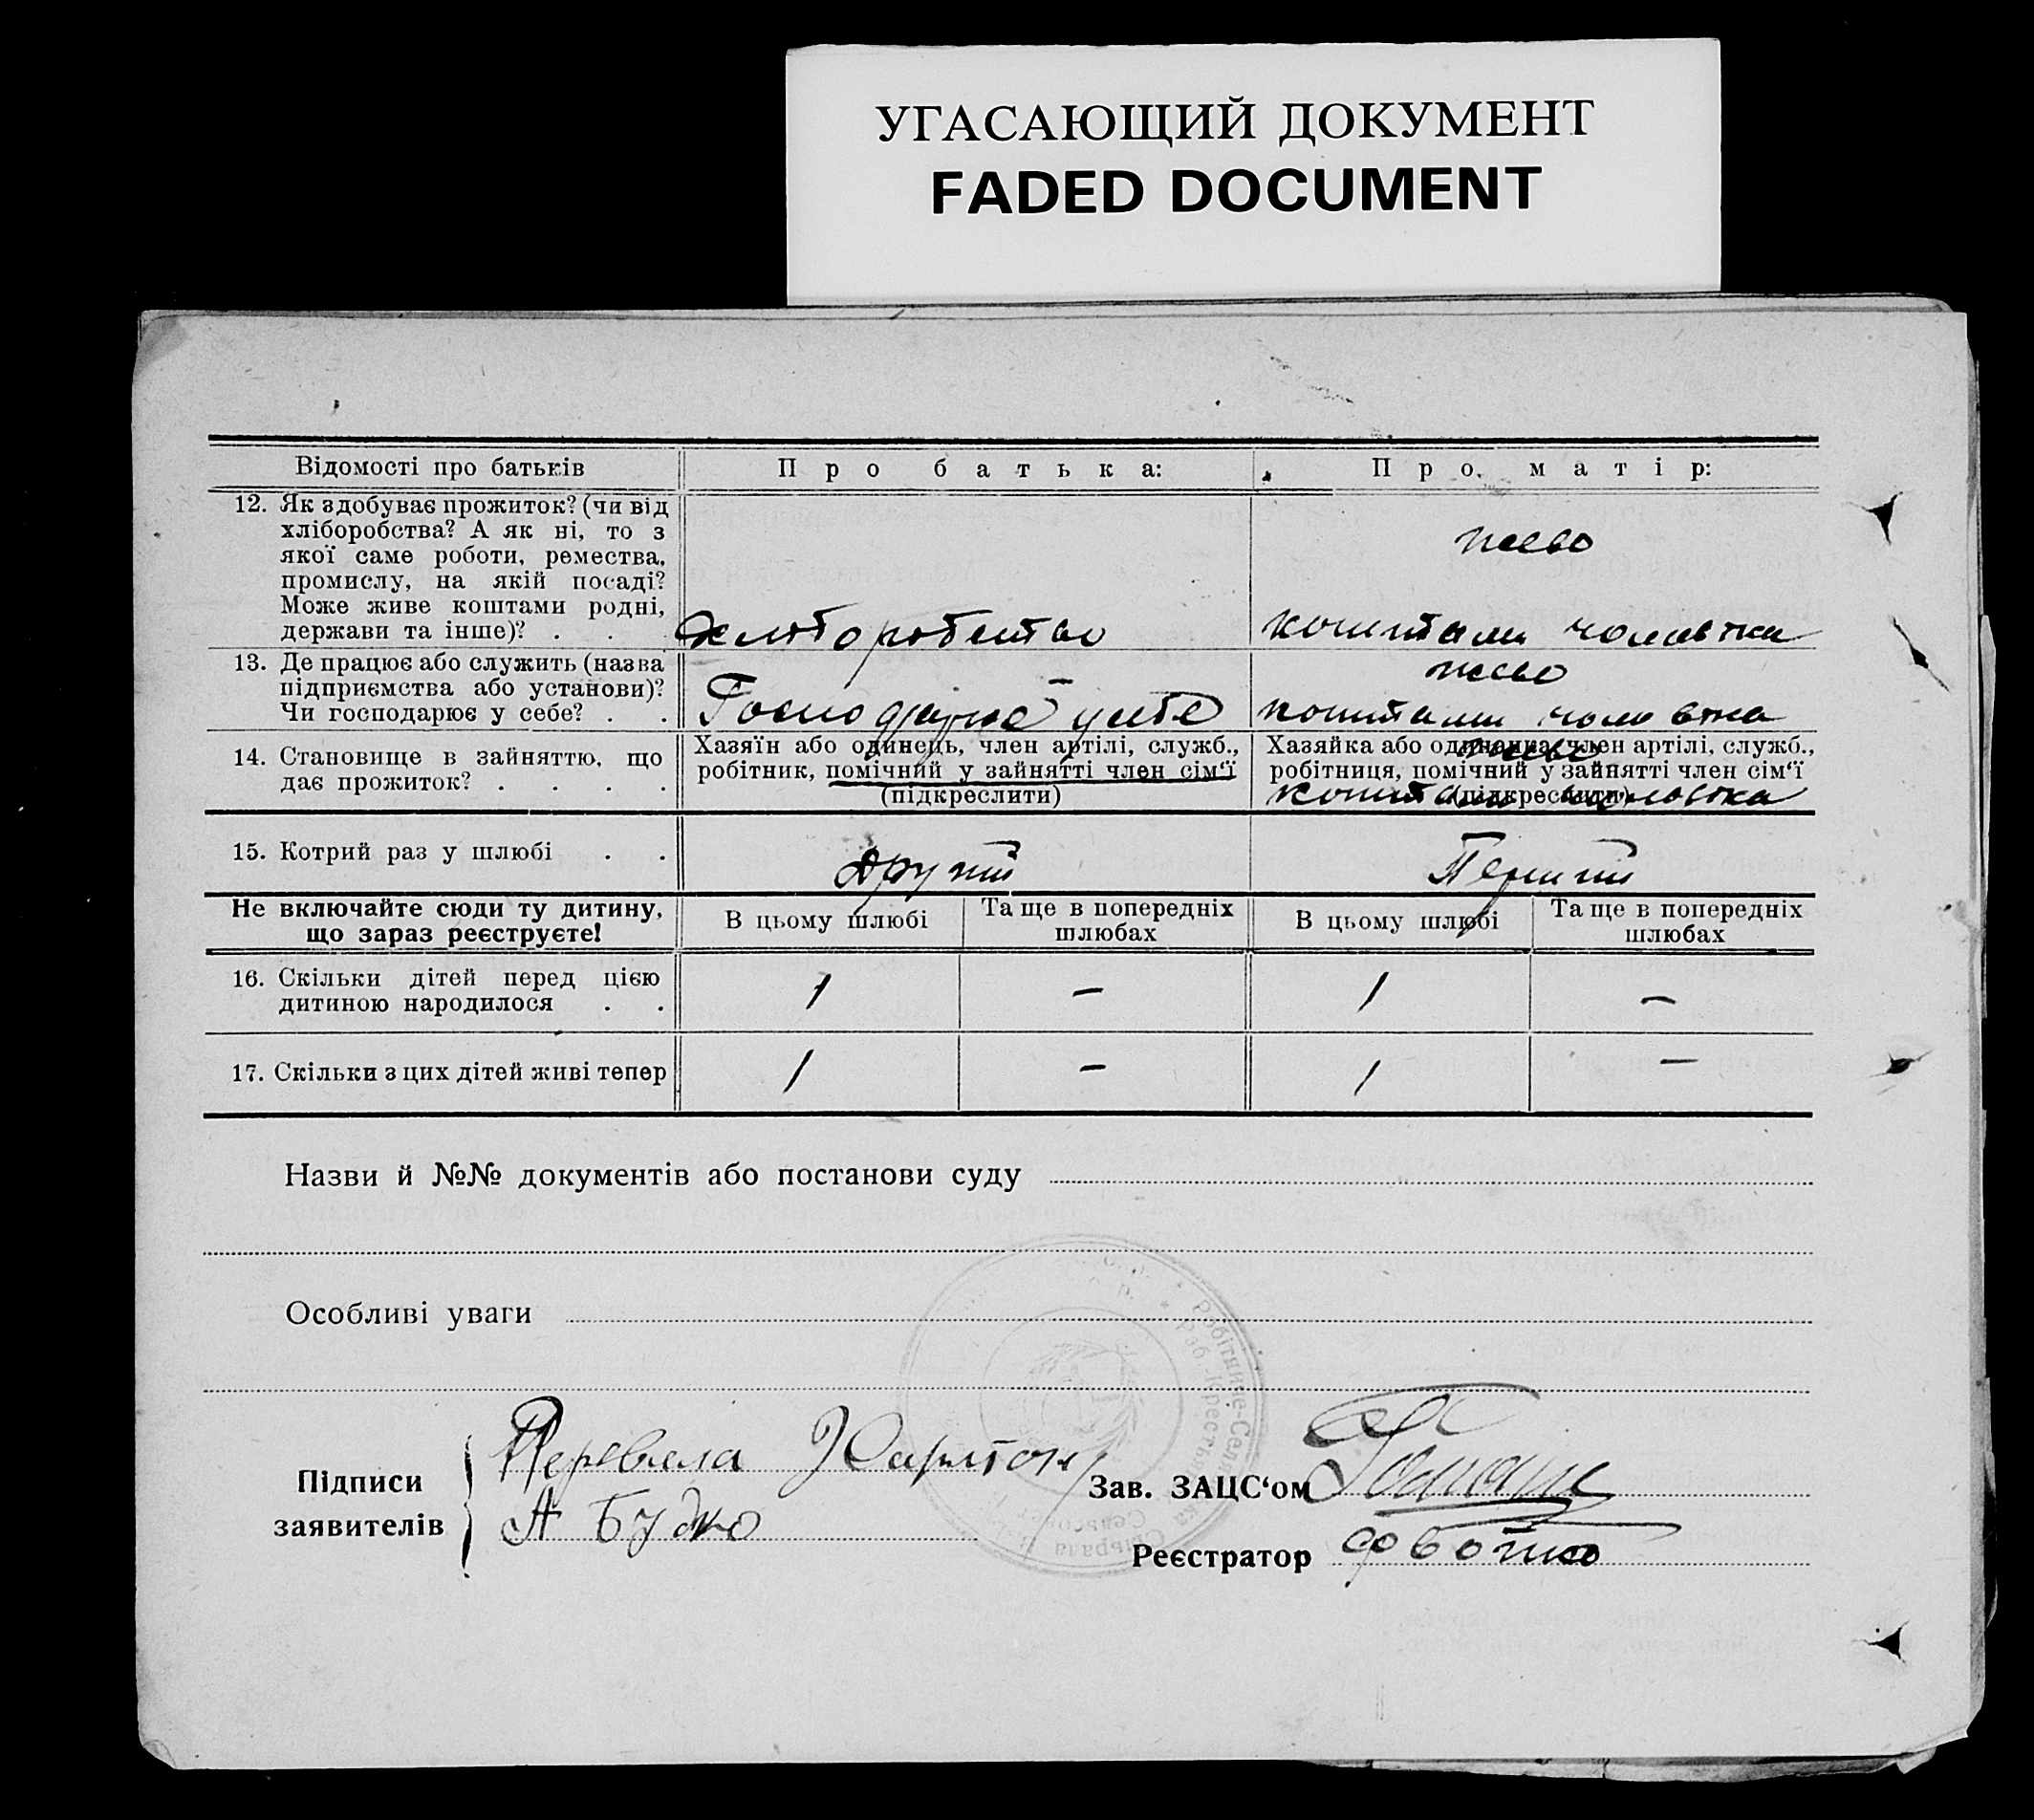 УГАСАЮЩИЙ ДОКУМЕНТ
FADED DOCUMENT
Відомості про батьків
Про батька:
Про матір:
12. Як здобуває прожиток? (чи від
хліборобства? А як ні, то з
якої саме роботи, ремества,
промислу, на якій посаді?
Може живе коштами родні,
держави та інше)? . . .
коштами
13. Де працює або служить (назва
підприємства або установи)?
Чи господарює у себе? . .
коштами
14. Становище в зайняттю, що
дає прожиток? . . . .
Хазяїн або одинець, член артілі, служб.,
робітник, помічний у зайнятті член сім‘ї
(підкреслити)
Хазяйка або одиначка, член артілі, служб.,
робітниця, помічний у зайнятті член сім‘ї
(підкреслити)
15. Котрий раз у шлюбі . .
другий
Перший
Не включайте сюди ту дитину,
що зараз реєструєте!
В цьому шлюбі
Та ще в попередніх
шлюбах
В цьому шлюбі
Та ще в попередніх
шлюбах
16. Скільки дітей перед цією
дитиною народилося . .
1
—
1
—
17. Скільки з цих дітей живі тепер
1
—
1
—
Назви й №№ документів або постанови суду
Особливі уваги
Підписи
заявителів
А Будко
Зав. ЗАЦС‘ом
Реєстратор